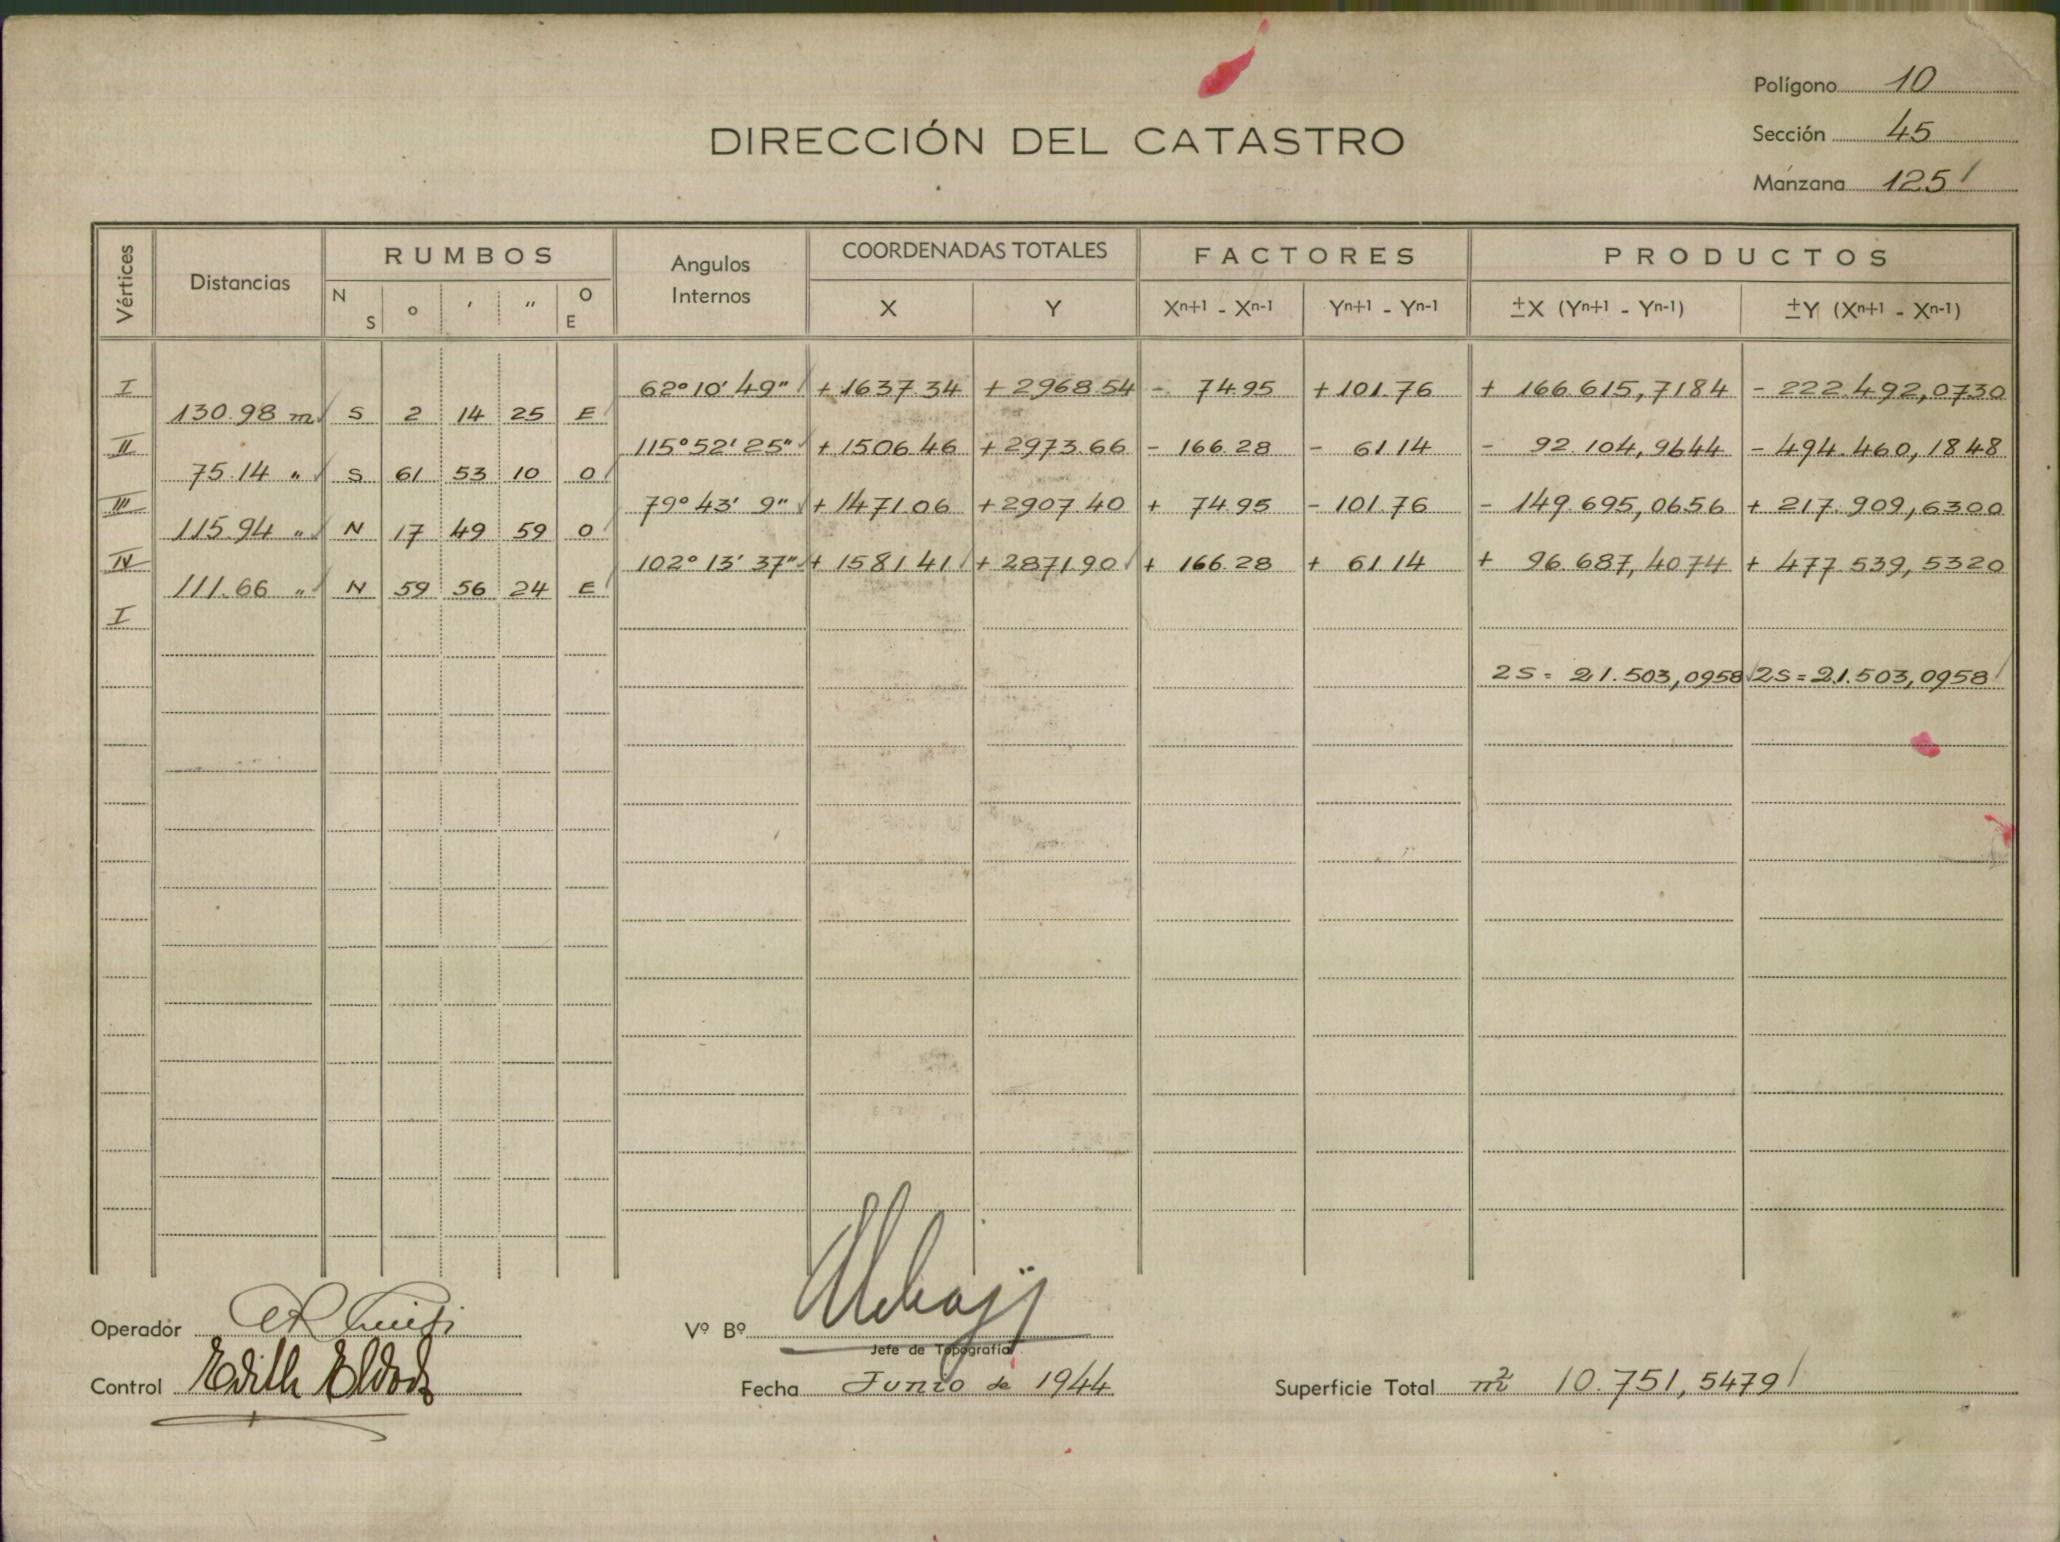 Polígono 10
DIRECCIÓN DEL CATASTRO
Sección 45
Manzana 125
Vértices Distancias RUMBOS N S o ' " O E Angulos Internos COORDENADAS TOTALES X Y FACTORES Xn+1 - Xn-1 Yn+1 - Yn-1 PRODUCTOS ±X (Yn+1 - Yn-1) ±Y (Xn+1 - Xn-1)
I 62° 10' 49" + 1637.34 + 2968.54 - 74.95 + 101.76 + 166.615,7184 - 222.492,0730
130.98 m S 2 14 25 E
II 115° 52' 25" + 1506.46 + 2973.66 - 166.28 - 61.14 - 92.104,9644 - 494.460,1848
75.14 " S 61 53 10 O
III 79° 43' 9" + 1471.06 + 2907.40 + 74.95 - 101.76 - 149.695,0656 + 217.909,6300
115.94 " N 17 49 59 O
IV 102° 13' 37" + 1581.41 + 2871.90 + 166.28 + 61.14 + 96.687,4074 + 477.539,5320
111.66 " N 59 56 24 E
I
2S = 21.503,0958 2S = 21.503,0958
Operador
Vº Bº
Jefe de Topografía
Control Edith
Fecha Junio de 1944
Superficie Total m² 10.751,5479